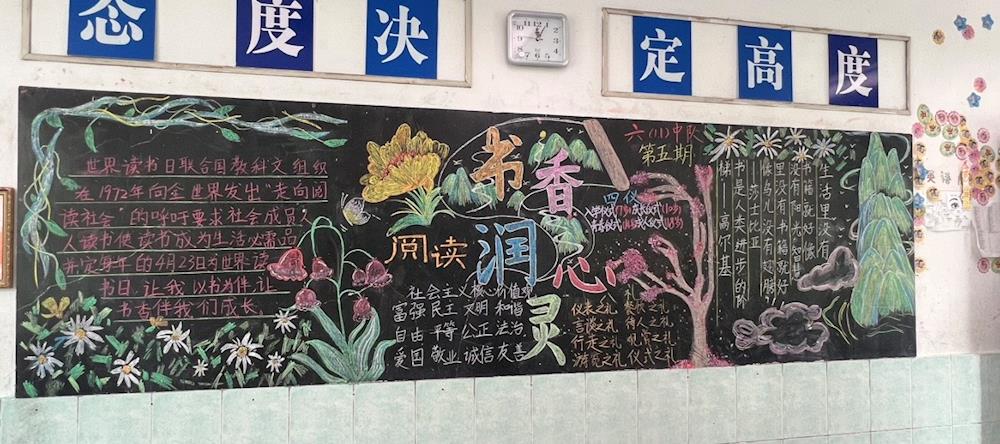 态度决定高度
世界读书日联合国教科文组织
在1972年向全世界发出"走向阅
读社会"的呼吁要求社会成员人
人读书使读书成为生活必需品
并定每年的4月23日为世界读
书日，让我以书为伴，让
书香伴我们成长。
书香润心灵
阅读
社会主义核心价值观
富强 民主 文明 和谐
自由 平等 公正 法治
爱国 敬业 诚信 友善
六(11)中队
第五期
四仪
仪表之礼
言谈之礼 待人之礼
行走之礼 观赏之礼
游览之礼 仪式之礼
生活里没有
书籍就好像
没有阳光智慧
里没有书籍就好
像鸟儿没有翅膀
—莎士比亚
书是人类进步的阶
梯—高尔基
英语